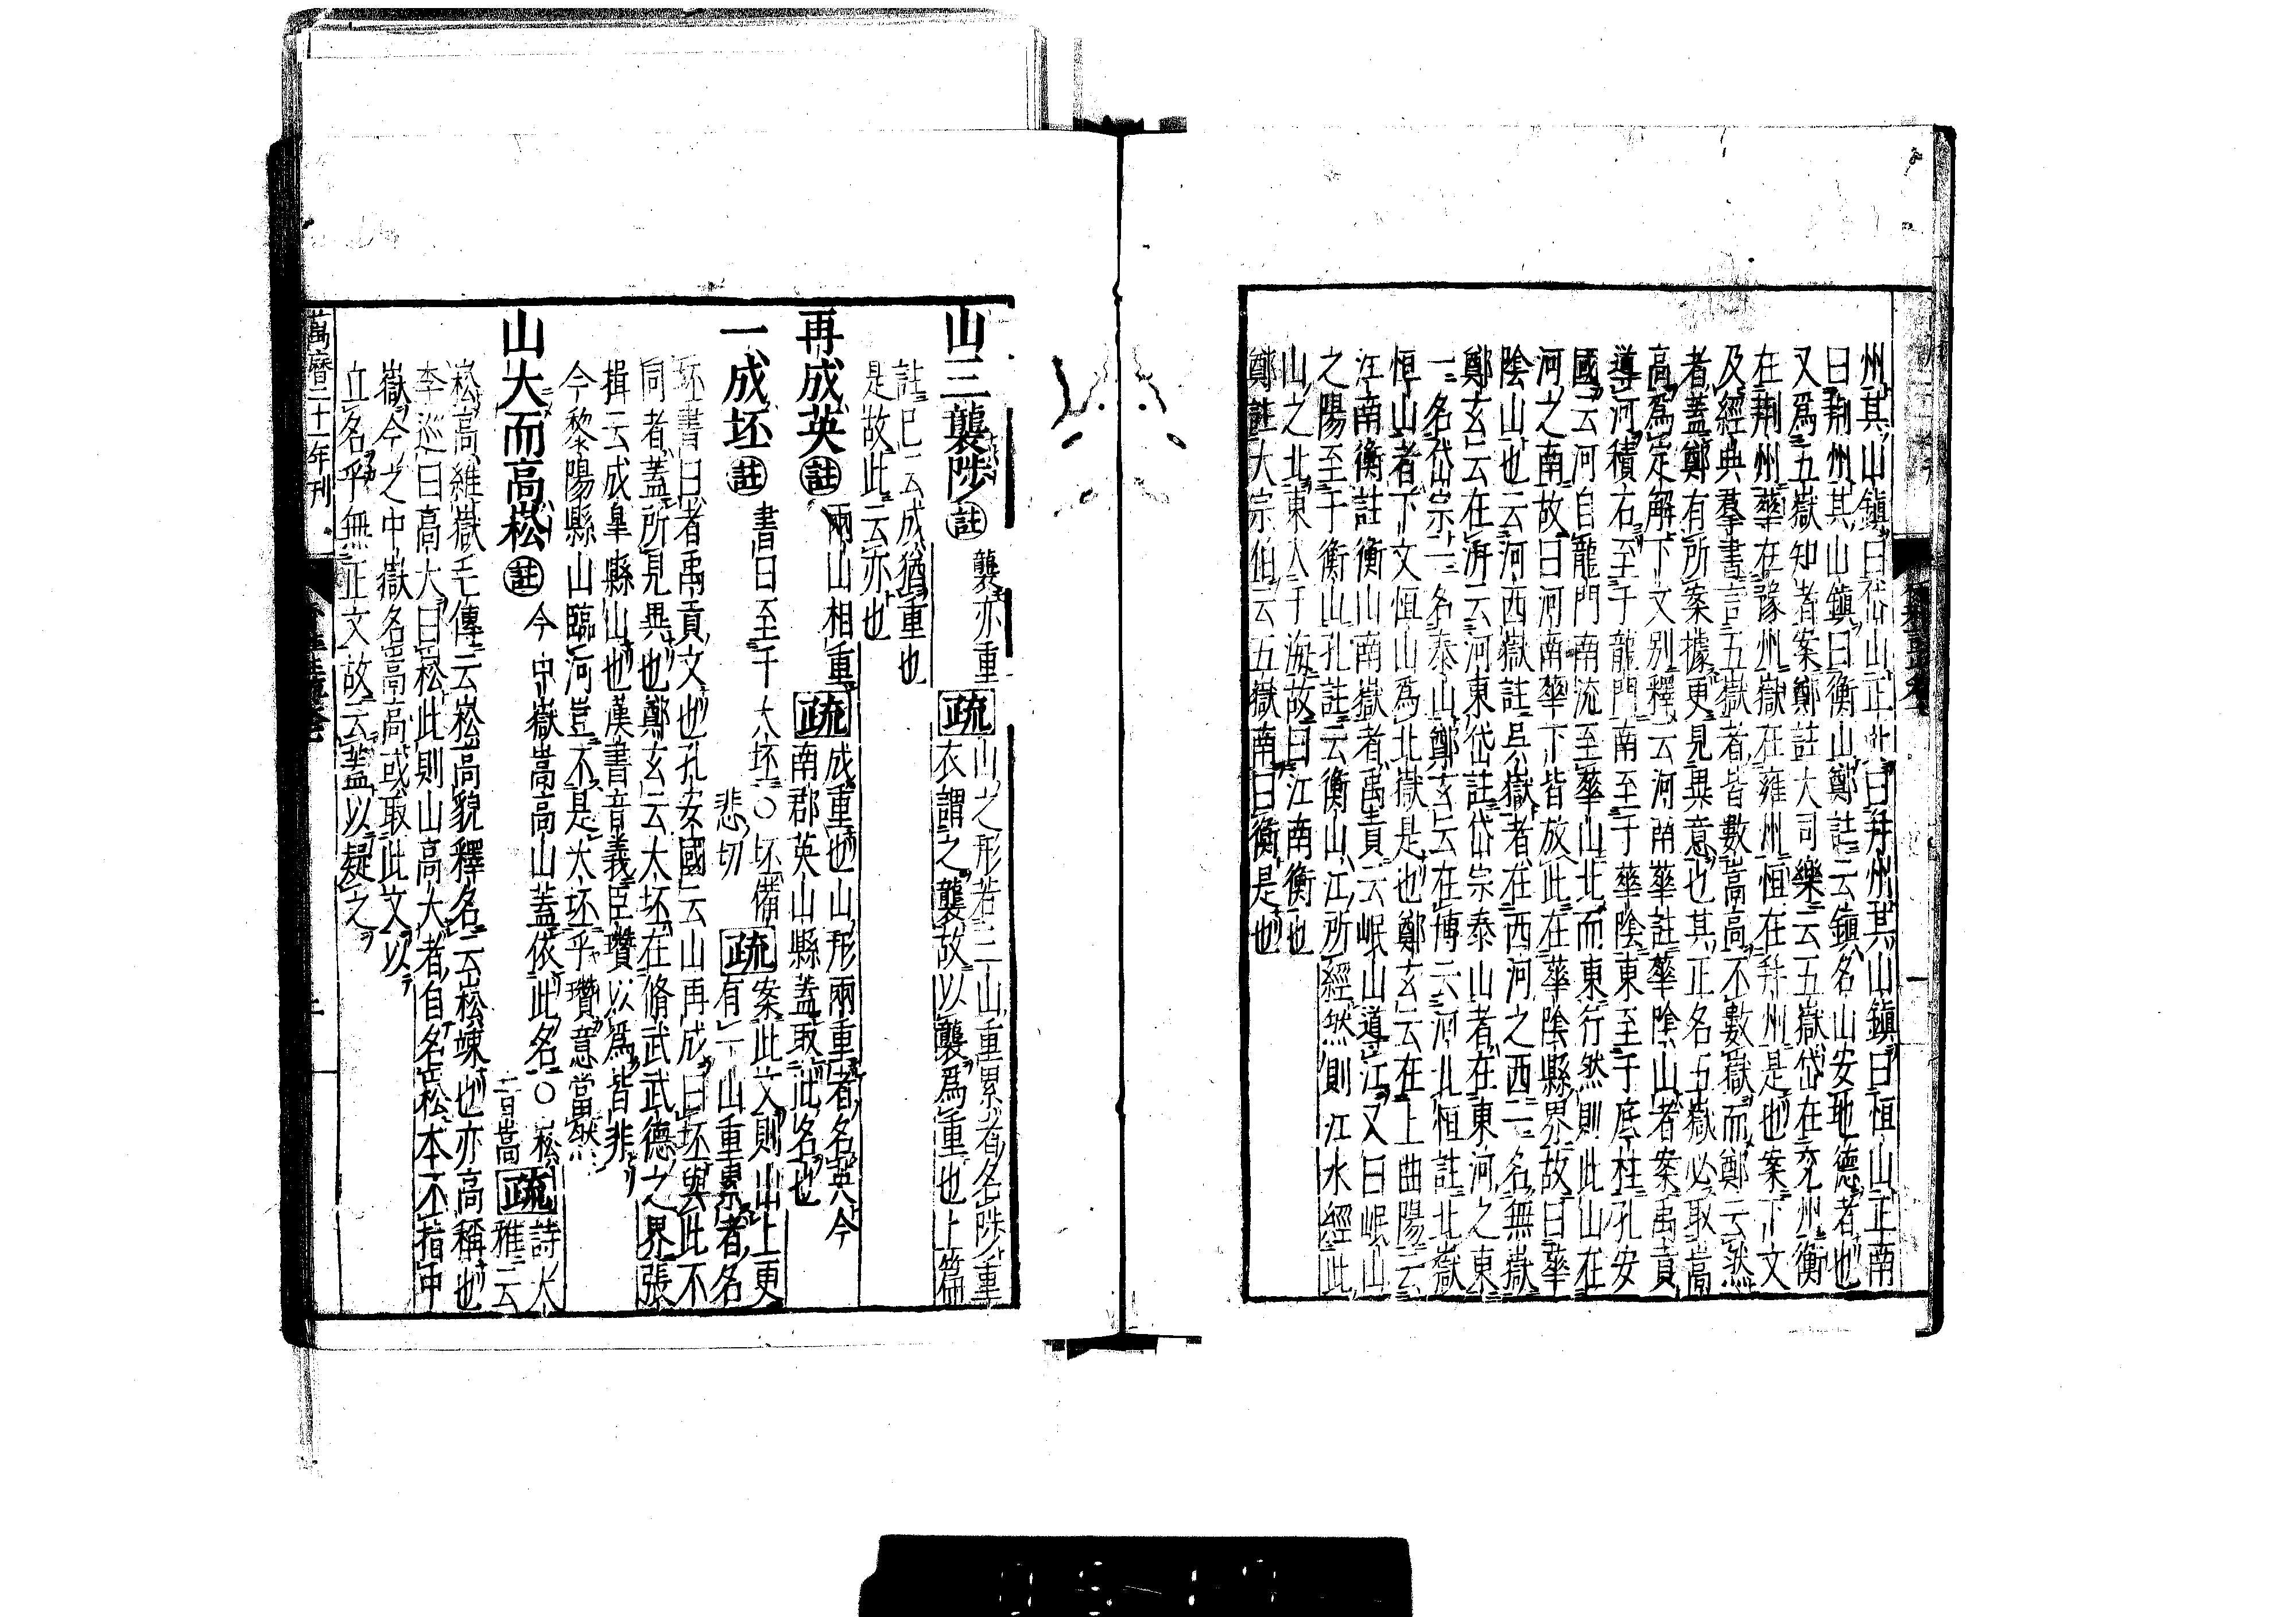 州其山鎮曰岱山正北曰并州其山鎮曰恒山正南
曰荆州其山鎮曰衡山鄭註云鎮名山安地德者也
又爲五嶽知者案鄭註大司樂云五嶽岱在兖州衡
在荆州華在豫州嶽在雍州恒在并州是也案下文
及經典羣書言五嶽者皆數嵩高不數嶽而鄭云然
者蓋鄭有所案據更見異意也其正名五嶽必取嵩
高爲定解下文别釋云河南華註華陰山者案禹貢
導河積石至于龍門南至于華陰東至于底柱孔安
國云河自龍門南流至華山北而東行然則此山在
河之南故曰河南華下皆放此在華陰縣界故曰華
陰山也云河西嶽註吳嶽者在西河之西一名無嶽
鄭玄云在汧云河東岱註岱宗泰山者在東河之東
一名岱宗一名泰山鄭玄云在博云河北恒註北嶽
恒山者下文恒山爲北嶽是也鄭玄云在上曲陽云
江南衡註衡山南嶽者禹貢云岷山導江又曰岷山
之陽至于衡山孔註云衡山江所經然則江水經此
山之北東入于海故曰江南衡也
鄭註大宗伯云五嶽南曰衡是也
山三襲陟註襲亦重疏山之形若三山重累者名陟重
衣謂之襲故以襲爲重也上篇
註已云成猶重也
是故此云亦也
再成英註兩山相重疏成重也山形兩重者名英今
南郡英山縣蓋取此名也
一成坯註書曰至于大坯○坯備
悲切疏案此文則山上更
有一山重累者名
坯書曰者禹貢文也孔安國云山再成曰坯與此不
同者蓋所見異也鄭玄云大坯在脩武武德之界張
揖云成臯縣山也漢書音義臣瓚以爲皆非
今黎陽縣山臨河豈不是大坯乎瓚意當然
山大而高崧註今中嶽嵩高山蓋依此名○崧
音嵩疏詩大
雅云
崧高維嶽毛傳云崧高貌釋名云崧竦也亦高稱也
李巡曰高大曰崧此則山高大者自名崧本不指中
嶽今之中嶽名嵩高或取此文以
立名乎無正文故云蓋以疑之
萬曆二十一年刊